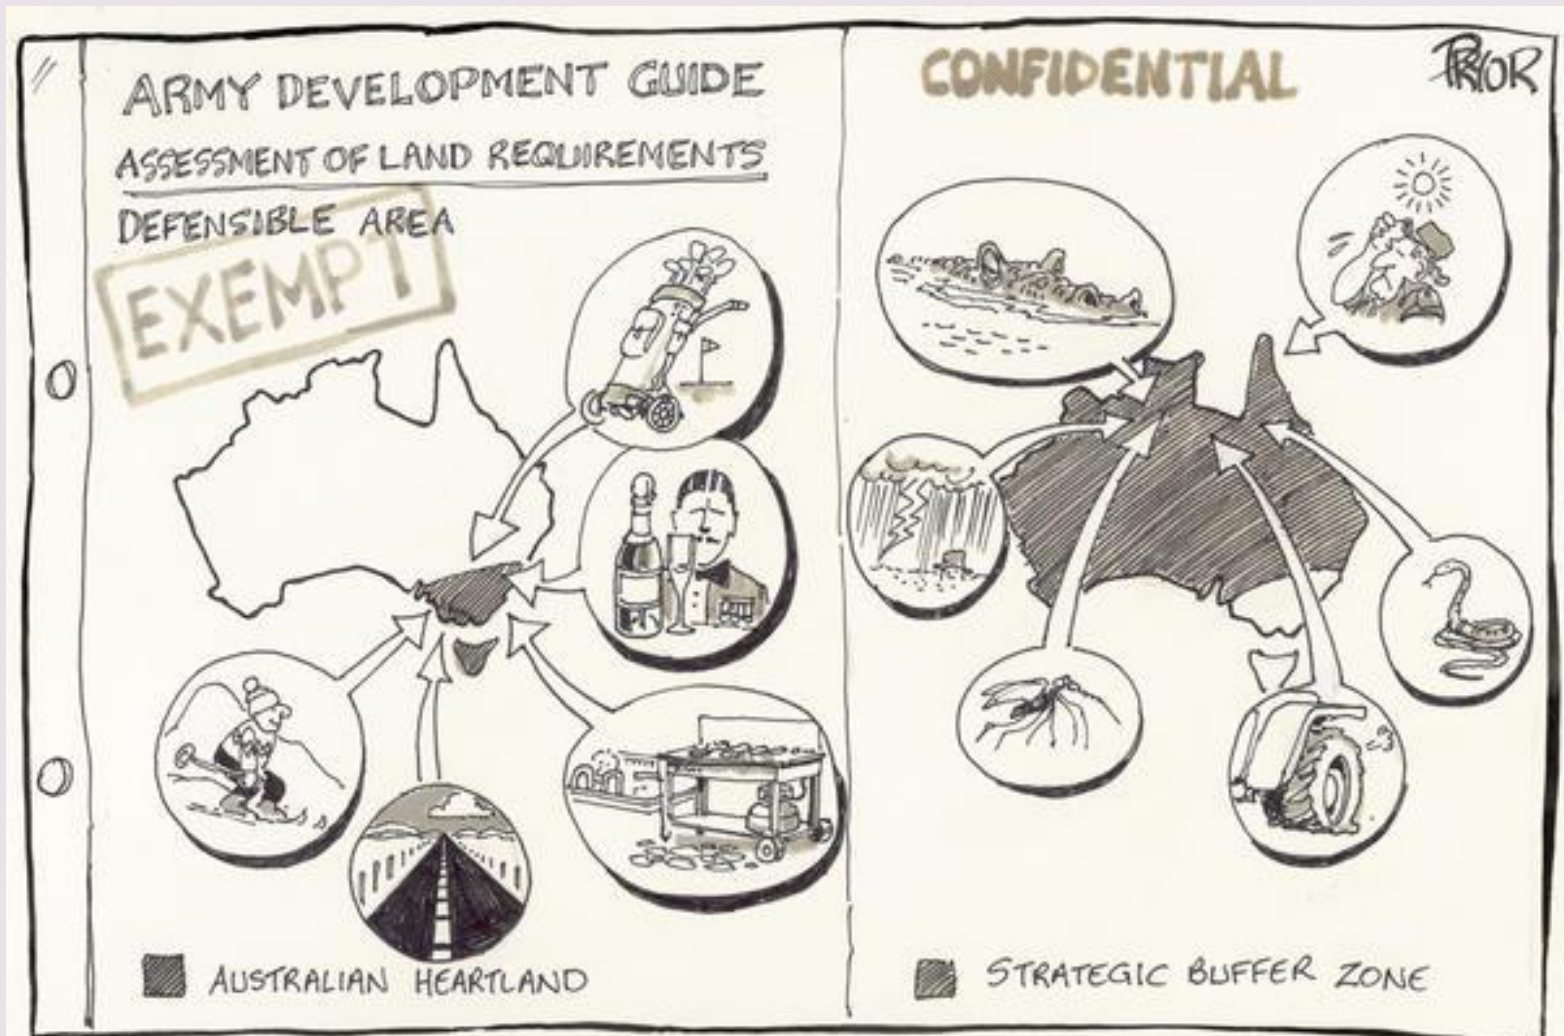 ARMY DEVELOPMENT GUIDE
ASSESSMENT OF LAND REQUIREMENTS
DEFENSIBLE AREA
EXEMPT
AUSTRALIAN HEARTLAND
CONFIDENTIAL
PRYOR
STRATEGIC BUFFER ZONE